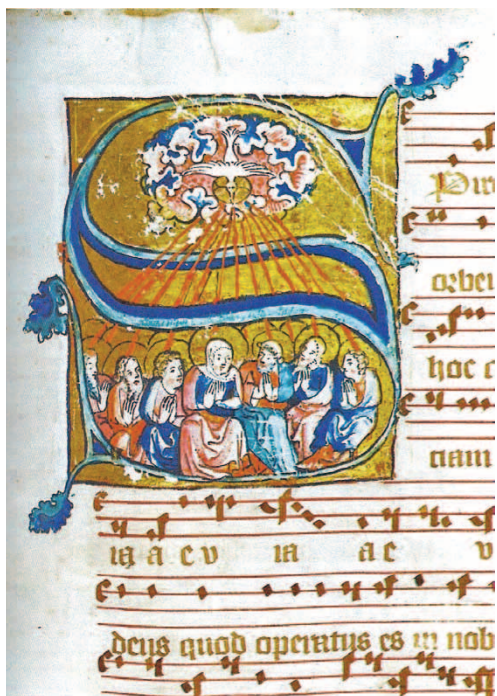 S
orbe
hoc c
tiam
ia a e v ia a e v
deus quod operatus es in nob